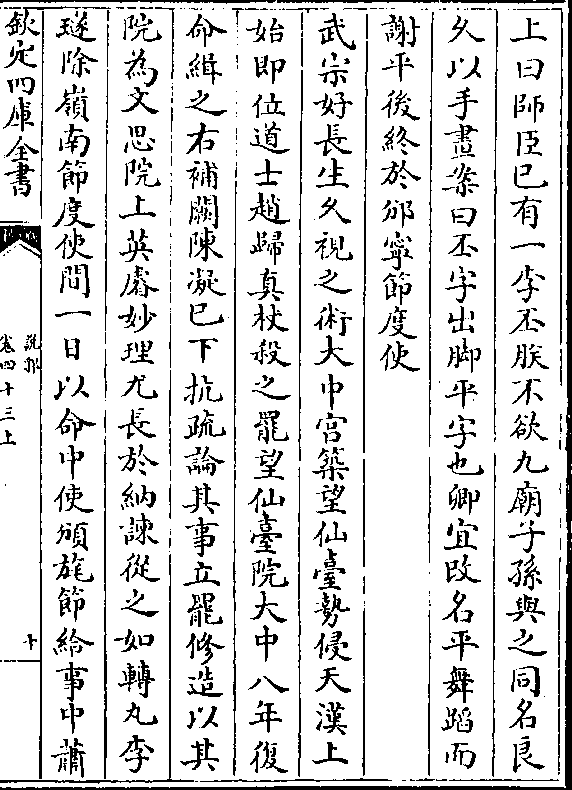 上曰師臣已有一李丕朕不欲九廟子孫與之同名良
乆以手畫案曰丕字出脚平字也卿宜改名平舞蹈而
謝平後終於邠寧節度使
武宗好長生乆視之術大中宮築望仙臺勢侵天漢上
始即位道士趙歸真杖殺之罷望仙臺院大中八年復
命緝之右補闕陳凝已下抗疏論其事立罷修造以其
院為文思院上英睿妙理尤長於納諫從之如轉丸李
璲除嶺南節度使間一日以命中使頒旄節給事中蕭
欽定四庫全書
說郛
卷四十三上
十